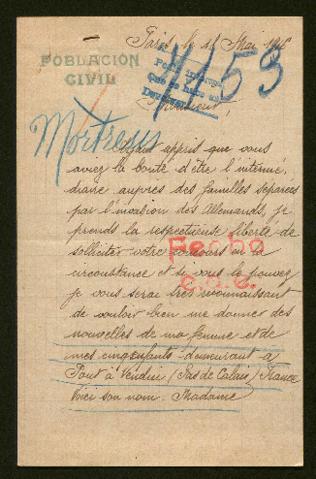 Paris, le 11 Mai 191
POBLACIÓN
CIVIL
4453
Monsieur,
Mortreux
Ayant appris que vous
aviez la bonté d'être l'intermé-
diaire auprès des familles séparées
par l'invasion des Allemands, je
prends la respectueuse liberté de
solliciter votre concours en la
circonstance et si vous le pouvez
je vous serai très reconnaissant
de vouloir bien me donner des
nouvelles de ma femme et de
mes cinq enfants demeurant à
Pont à Vendin (Pas de Calais) France
Voici son nom: Madame
Fecho
c.a.c.